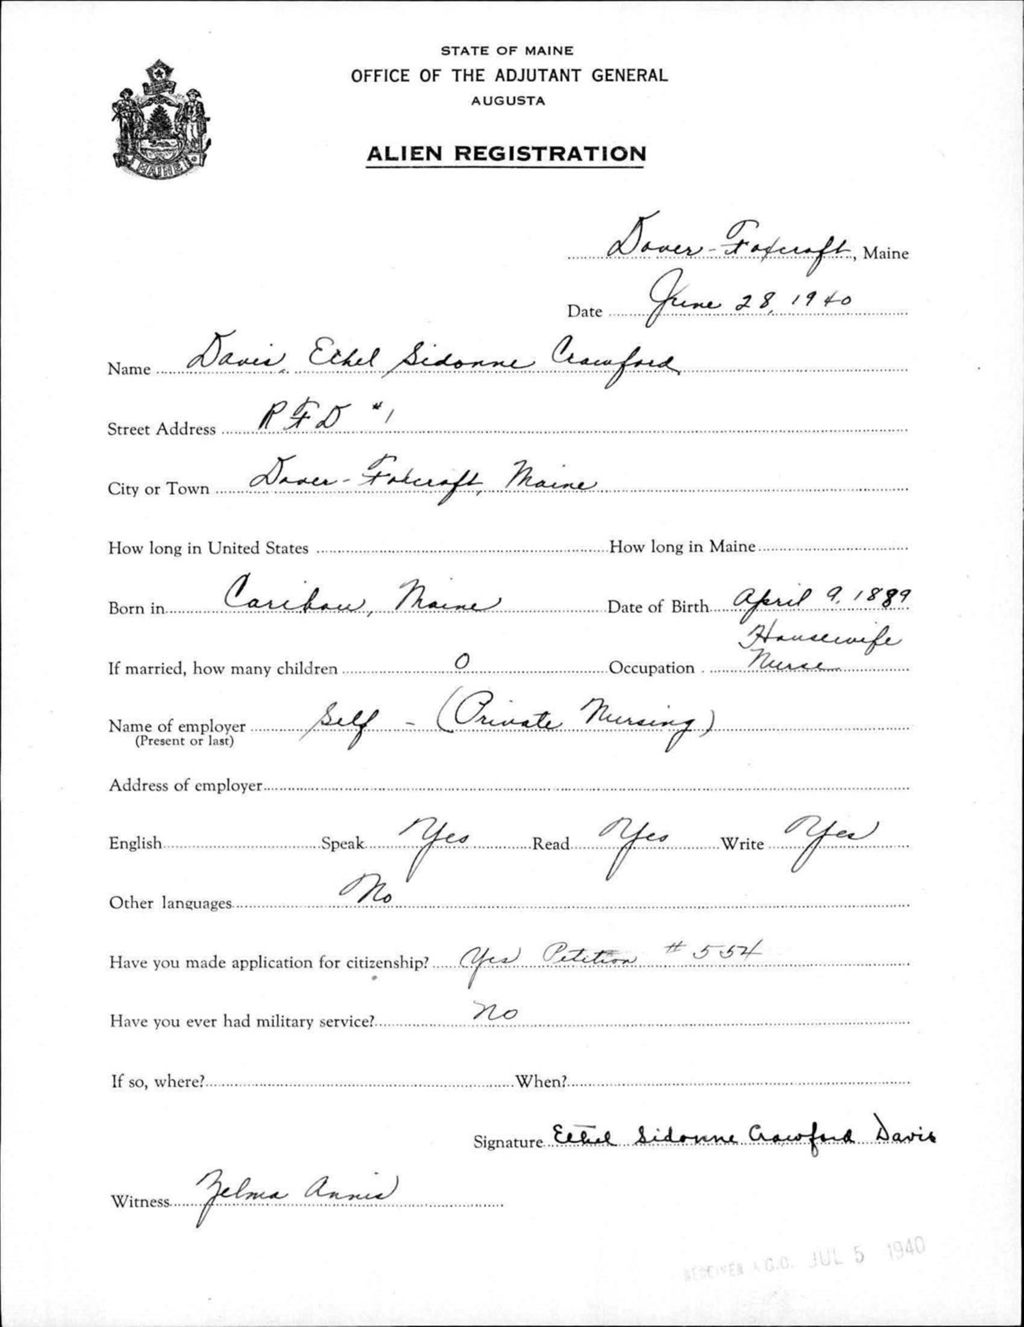 STATE OF MAINE
OFFICE OF THE ADJUTANT GENERAL
AUGUSTA
MAINE
ALIEN REGISTRATION
Dover-Foxcroft, Maine
Date June 28, 1940
Name Davis, Ethel Sidonne Crawford
Street Address RFD #1
City or Town Dover-Foxcroft, Maine
How long in United States How long in Maine
Born in Caribou, Maine Date of Birth April 9, 1889
Housewife
If married, how many children 0 Occupation Nurse
Name of employer Self - (Private Nursing)
(Present or last)
Address of employer
English Speak Yes Read Yes Write Yes
Other languages No
Have you made application for citizenship? Yes Petition #554
Have you ever had military service? No
If so, where? When?
Signature Ethel Sidonne Crawford Davis
Witness Zelma Annis
RECEIVED A.G.O. JUL 5 1940